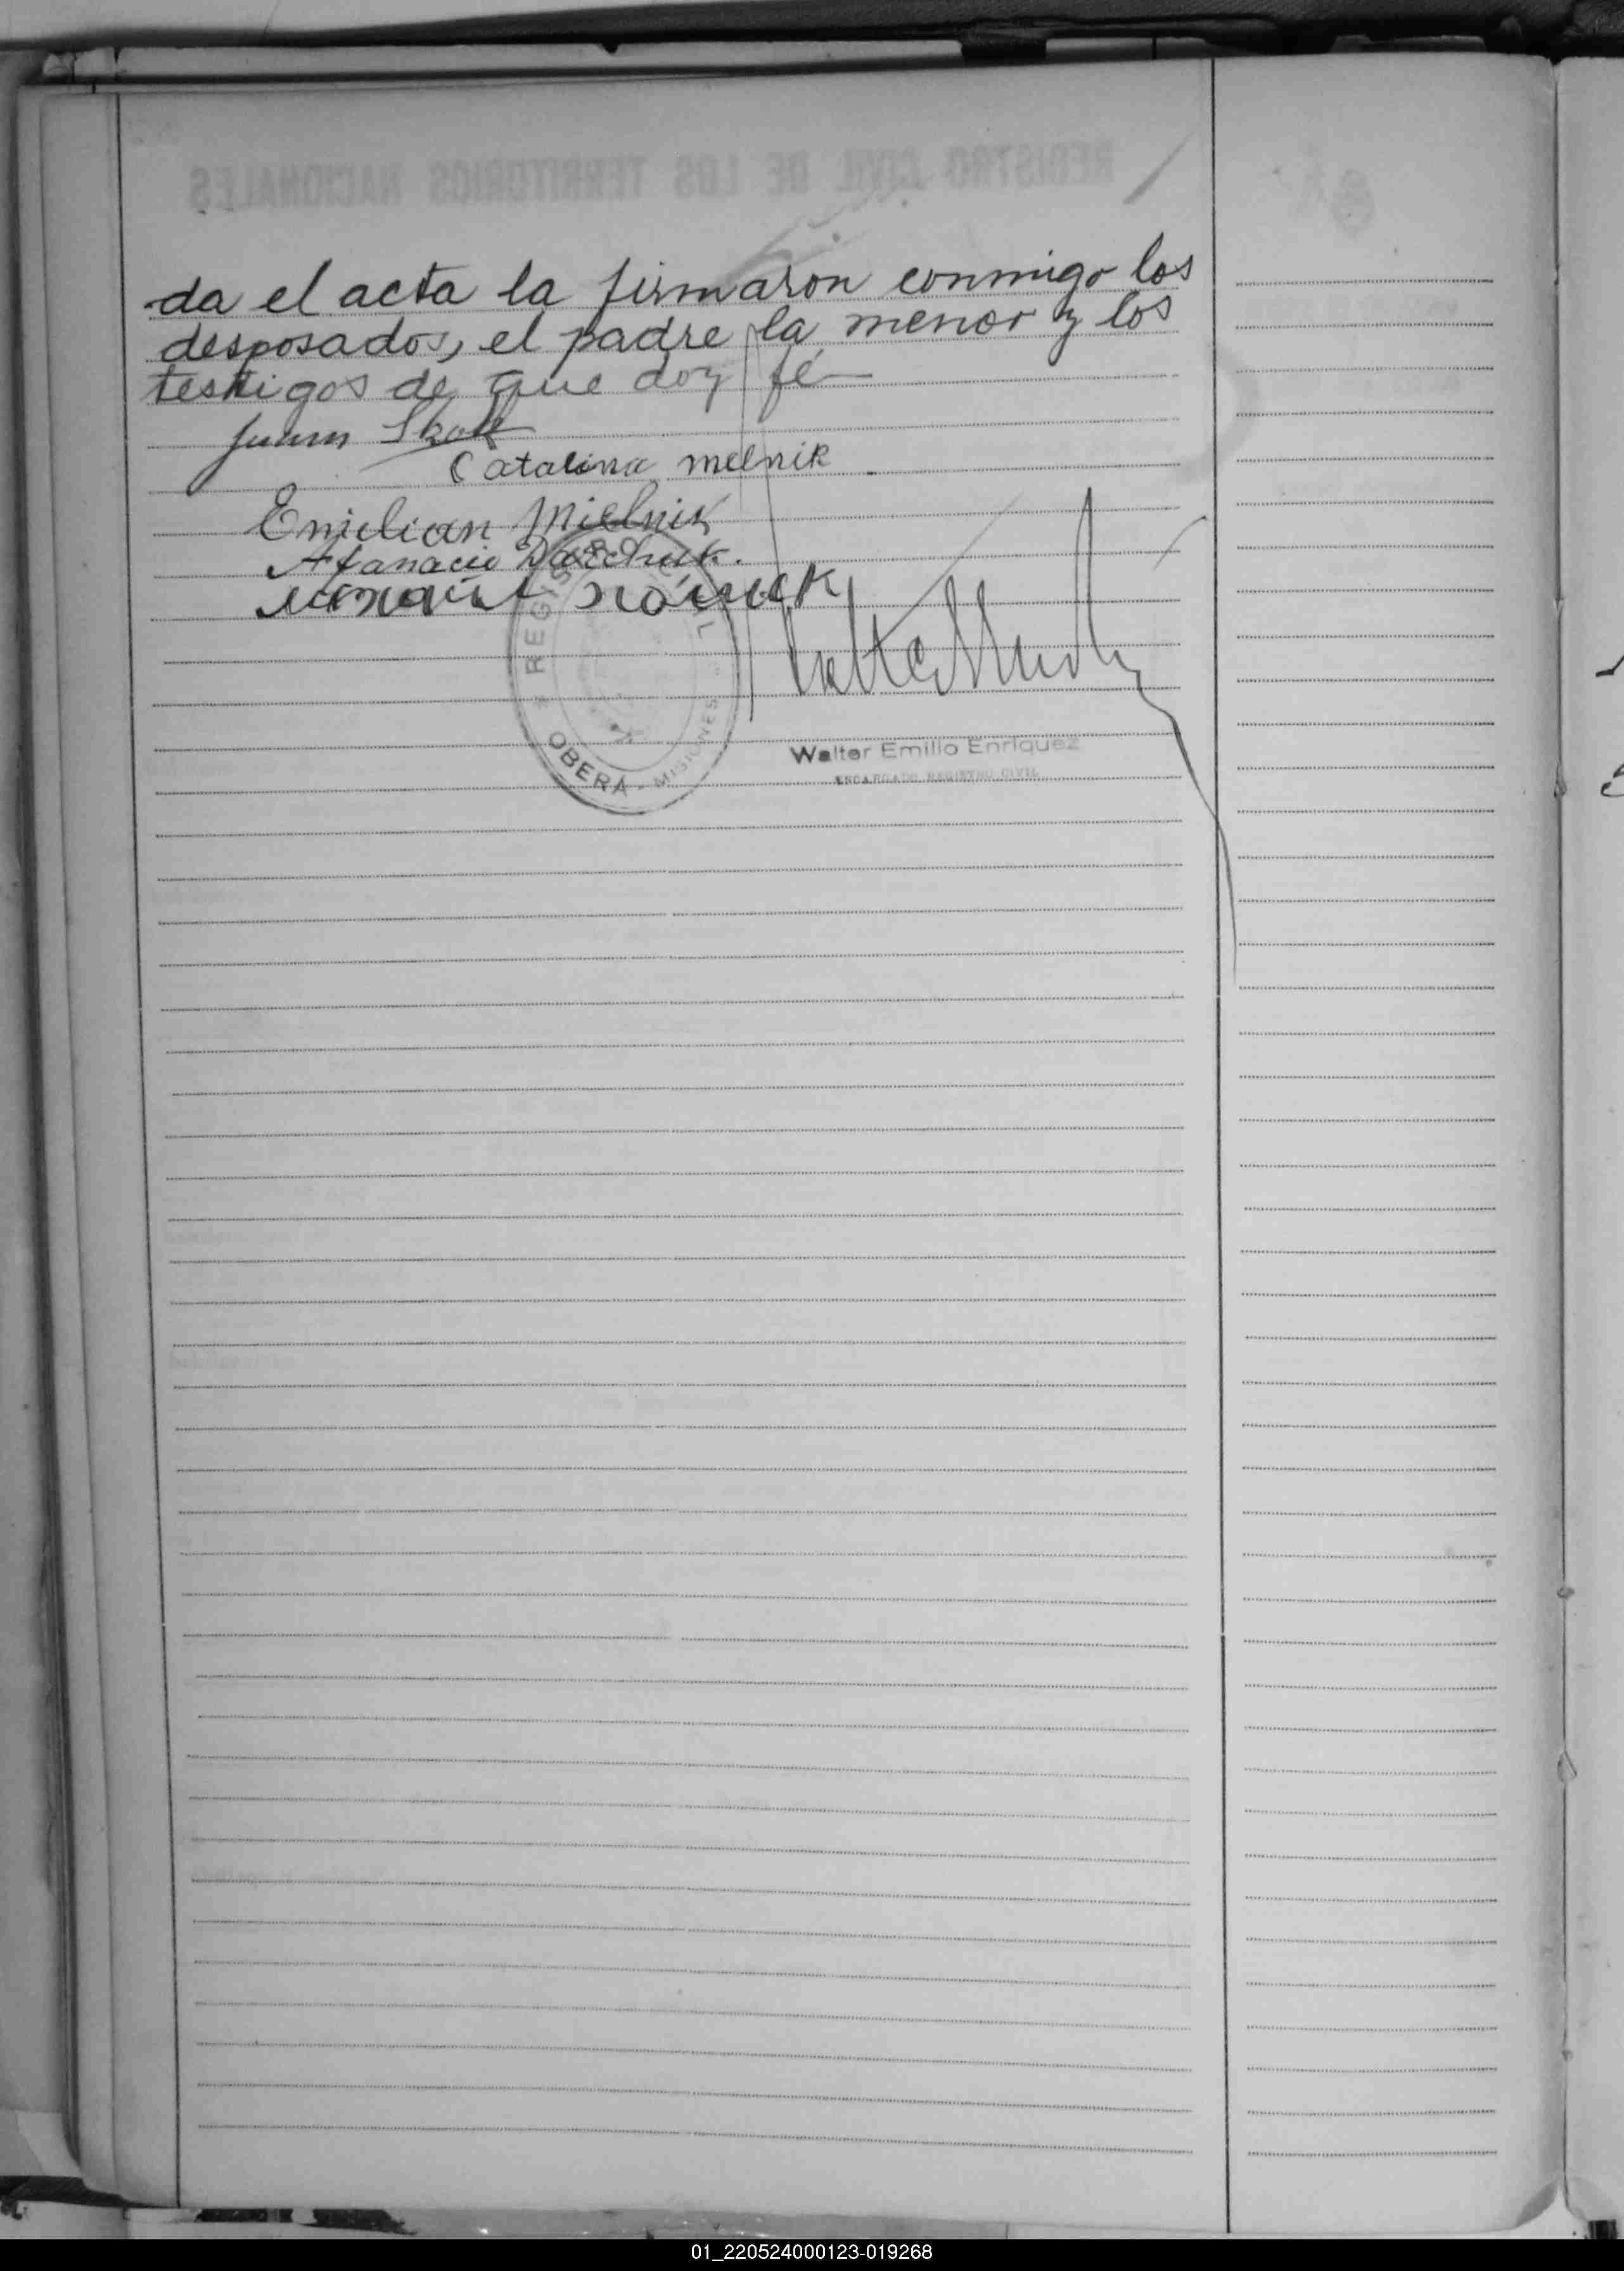 da el acta la firmaron conmigo los
desposados, el padre la menor y los
testigos de que doy fé
Juan Skok
Catalina melnik
Emielian Mielnik
Afanacio Darchuk.
REGISTRO CIVIL
OBERÁ - MISIONES
Walter Emilio Enriquez
ENCARGADO REGISTRO CIVIL
01_220524000123-019268